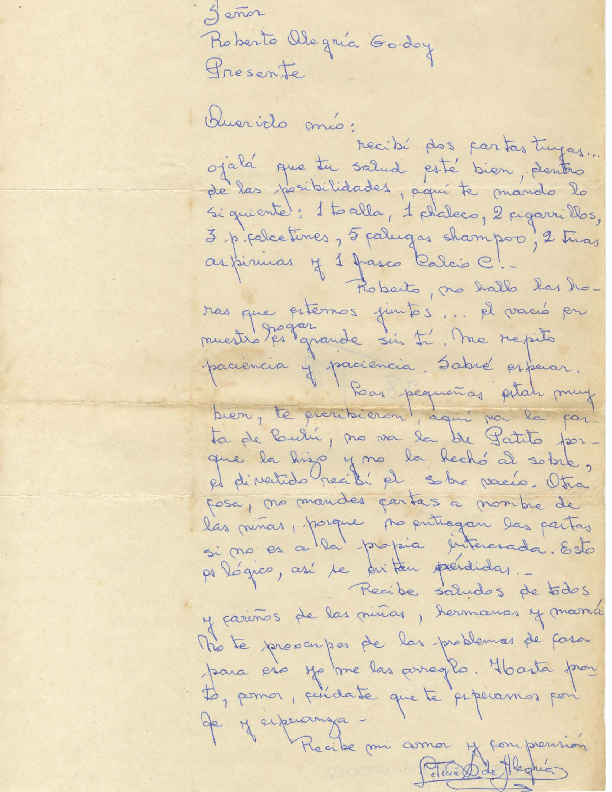 Señor
Roberto Alegría Godoy
Presente
Querido mío:
recibí dos cartas tuyas...
ojalá que tu salud esté bien, dentro
de las posibilidades, aquí te mando lo
siguiente: 1 toalla, 1 chaleco, 2 cigarrillos,
3 p. calcetines, 5 calugas shampoo, 2 tiras
aspirinas y 1 frasco Calcio C!.-
Roberto, no hallo las ho-
ras que estemos juntos... el vació en
nuestro hogar es grande sin tí. Me repito
paciencia y paciencia. Sabré esperar.
Las pequeñas están muy
bien, te escribieron, aquí va la car-
ta de Lulú, no va la de Patito por-
que la hizo y no la hechó al sobre,
es divertido recibí el sobre vacío. Otra
cosa, no mandes cartas a nombre de
las niñas, porque no entregan las cartas
si no es a la propia interesada. Esto
es lógico, así se evitan pérdidas.-
Recibe saludos de todos
y cariños de las niñas, hermanos y mamá
No te preocupes de los problemas de casa
para eso yo me las arreglo. Hasta pron-
to, amor, cuídate que te esperamos con
fe y esperanza-
Recibe mi amor y comprensión
de Alegría